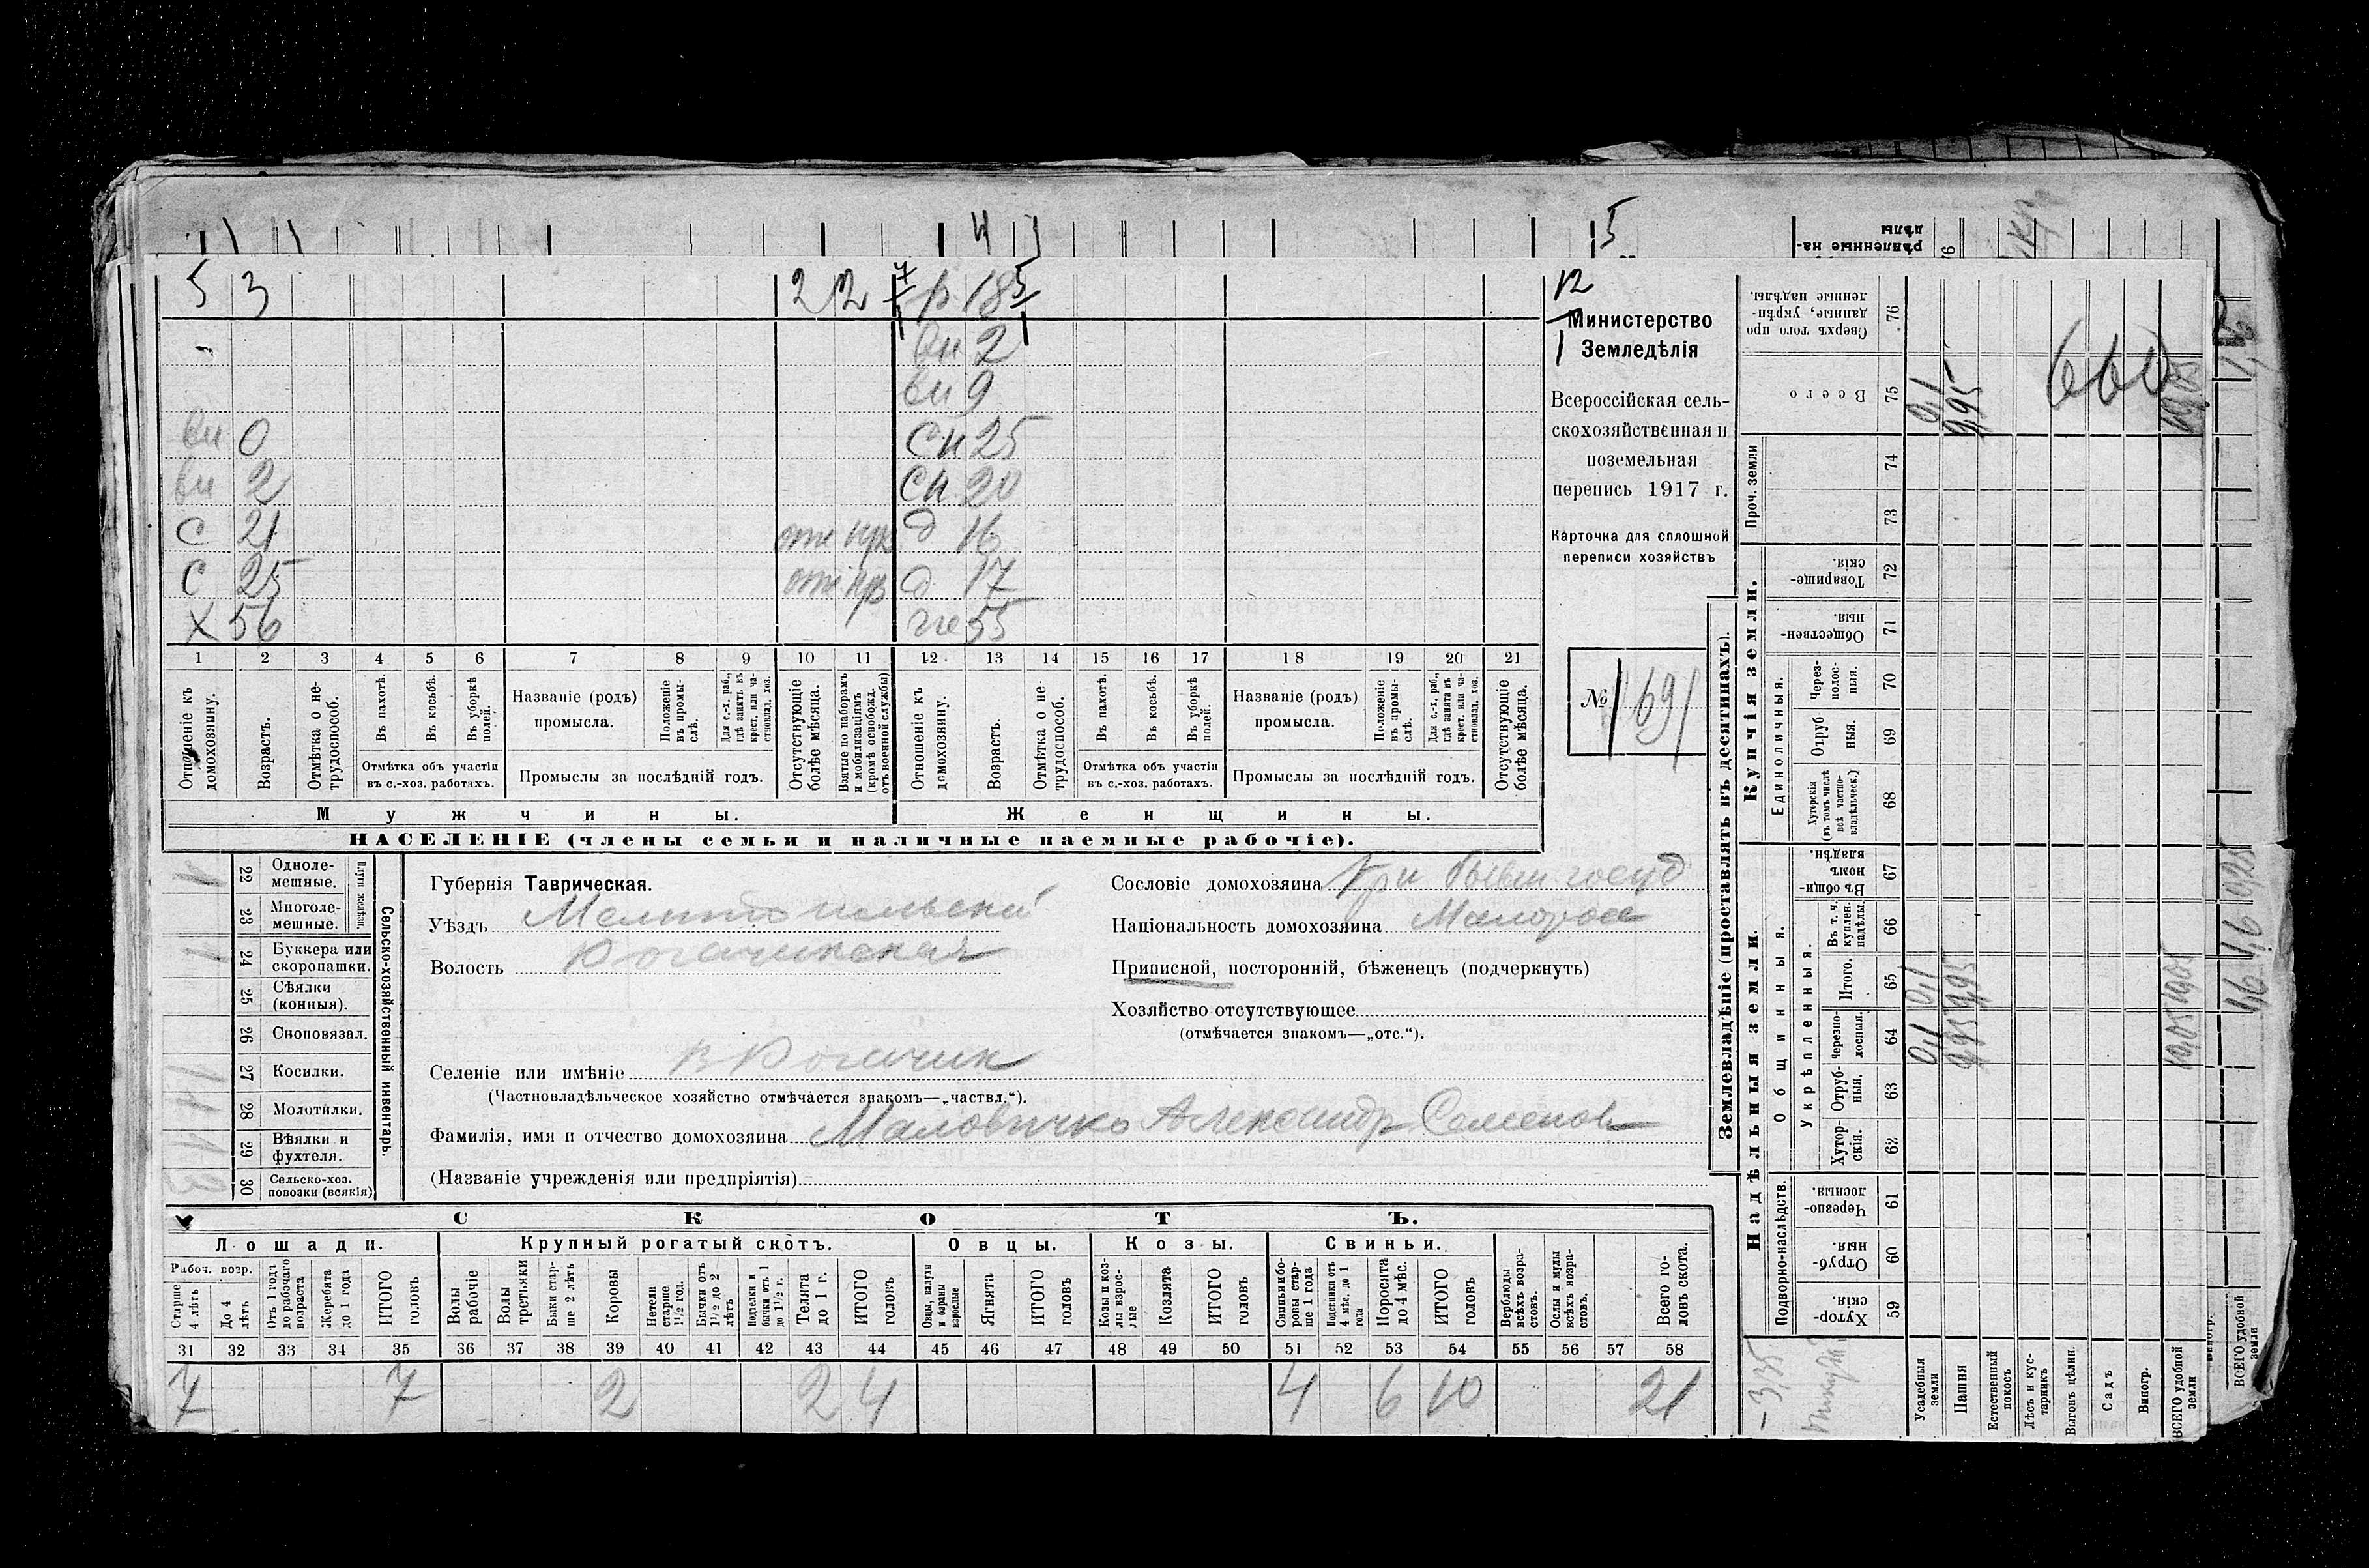 4 5
5 3 22 7/1 р 18 5/1
вн 2
вн 9
вн 0 сн 25
вн 2 сн 20
С 21 отс д 16
С 25 отс д 17
Х 56 же 55
1 2 3 4 5 6 7 8 9 10 11 12 13 14 15 16 17 18 19 20 21
Отношеніе къ домохозяину.
Возрастъ.
Отмѣтка о нетрудоспособ.
Въ пахотѣ.
Въ косьбѣ.
Въ уборкѣ полей.
Отмѣтка объ участіи въ с.-хоз. работахъ.
Названіе (родъ) промысла.
Положеніе въ промыслѣ.
Для с.-х. раб., гдѣ занятъ въ крест. или частновлад. хоз.
Промыслы за послѣдній годъ.
Отсутствующіе болѣе мѣсяца.
Взятые по наборамъ и мобилизаціямъ (кромѣ освобожд. отъ военной службы)
Отношеніе къ домохозяину.
Возрастъ.
Отмѣтка о нетрудоспособ.
Въ пахотѣ.
Въ косьбѣ.
Въ уборкѣ полей.
Отмѣтка объ участіи въ с.-хоз. работахъ.
Названіе (родъ) промысла.
Положеніе въ промыслѣ.
Для с.-х. раб., гдѣ занятъ въ крест. или частновлад. хоз.
Промыслы за послѣдній годъ.
Отсутствующіе болѣе мѣсяца.
Мужчины. Женщины.
НАСЕЛЕНІЕ (члены семьи и наличные наемные рабочіе).
12/1
Министерство
Земледѣлія
Всероссійская сель-
скохозяйственная и
поземельная
перепись 1917 г.
Карточка для сплошной
переписи хозяйствъ
№ 169
Сельско-хозяйственный инвентарь.
Плуги желѣзн.
1 22 Однолемешные.
23 Многолемешные.
1 24 Буккера или скоропашки.
25 Сѣялки (конныя).
26 Сноповязал.
1 27 Косилки.
1 28 Молотилки.
1 29 Вѣялки и фухтеля.
3 30 Сельско-хоз. повозки (всякія)
Губернія Таврическая.
Уѣздъ Мелитопольскій
Волость Рогачикская
Сословіе домохозяина Кр-н бывш. госуд
Національность домохозяина Малоросс
Приписной, посторонній, бѣженецъ (подчеркнуть)
Хозяйство отсутствующее
(отмѣчается знакомъ—„отс.“).
Селеніе или имѣніе В Рогачик
(Частновладѣльческое хозяйство отмѣчается знакомъ—„частвл.“).
Фамилія, имя и отчество домохозяина Маловичко Александр Семенов
(Названіе учрежденія или предпріятія)
СКОТЪ.
Лошади. Крупный рогатый скотъ. Овцы. Козы. Свиньи.
Рабоч. возр.
Старше 4 лѣтъ
До 4 лѣтъ
Отъ 1 года до рабочаго возраста
Жеребята до 1 года
ИТОГО головъ
Волы рабочіе
Волы третьяки
Быки старше 2 лѣтъ
Коровы
Нетели старше 1½ год.
Бычки отъ 1½ до 2 лѣтъ
Подтелки и бычки отъ 1 до 1½ г.
Телята до 1 г.
ИТОГО головъ
Овцы, валухи и бараны взрослые
Ягнята
ИТОГО головъ
Козы и козлы взрослые
Козлята
ИТОГО головъ
Свиньи и боровы старше 1 года
Подсвинки отъ 4 мѣс. до 1 года
Поросята до 4 мѣс.
ИТОГО головъ
Верблюды всѣхъ возрастовъ.
Ослы и мулы всѣхъ возрастовъ.
Всего головъ скота.
31 32 33 34 35 36 37 38 39 40 41 42 43 44 45 46 47 48 49 50 51 52 53 54 55 56 57 58
7 7 2 2 4 4 6 10 21
Землевладѣніе (проставлять въ десятинахъ).
Надѣльныя земли. Купчія земли. Проч. земли
Подворно-наслѣдств. Общинныя. Укрѣпленныя. Единоличныя.
Хуторскія. 59
Отрубныя. 60
Черезполосныя. 61
Хуторскія. 62
Отрубныя. 63
Черезполосныя. 64 0,1 9,95 10,05
Итого. 65 0,1 9,95 10,05
Въ т. ч. куплен. надѣлы. 66
Въ общиномъ владѣн. 67
Хуторскія (въ томъ числѣ всѣ частновладѣльческ.) 68
Отрубныя. 69
Черезполосныя. 70
Общественныя. 71
Товарищескія. 72
73
74
Всего 75 0,1 9,95 10,05
660
Сверхъ того проданные, укрѣпленные надѣлы. 76
Усадебныя земли
Пашня
Естественный покосъ
Лѣсъ и кустарникъ
Выгонъ цѣлин.
Садъ
Виногр.
ВСЕГО удобной земли
ВСЕГО удобной земли